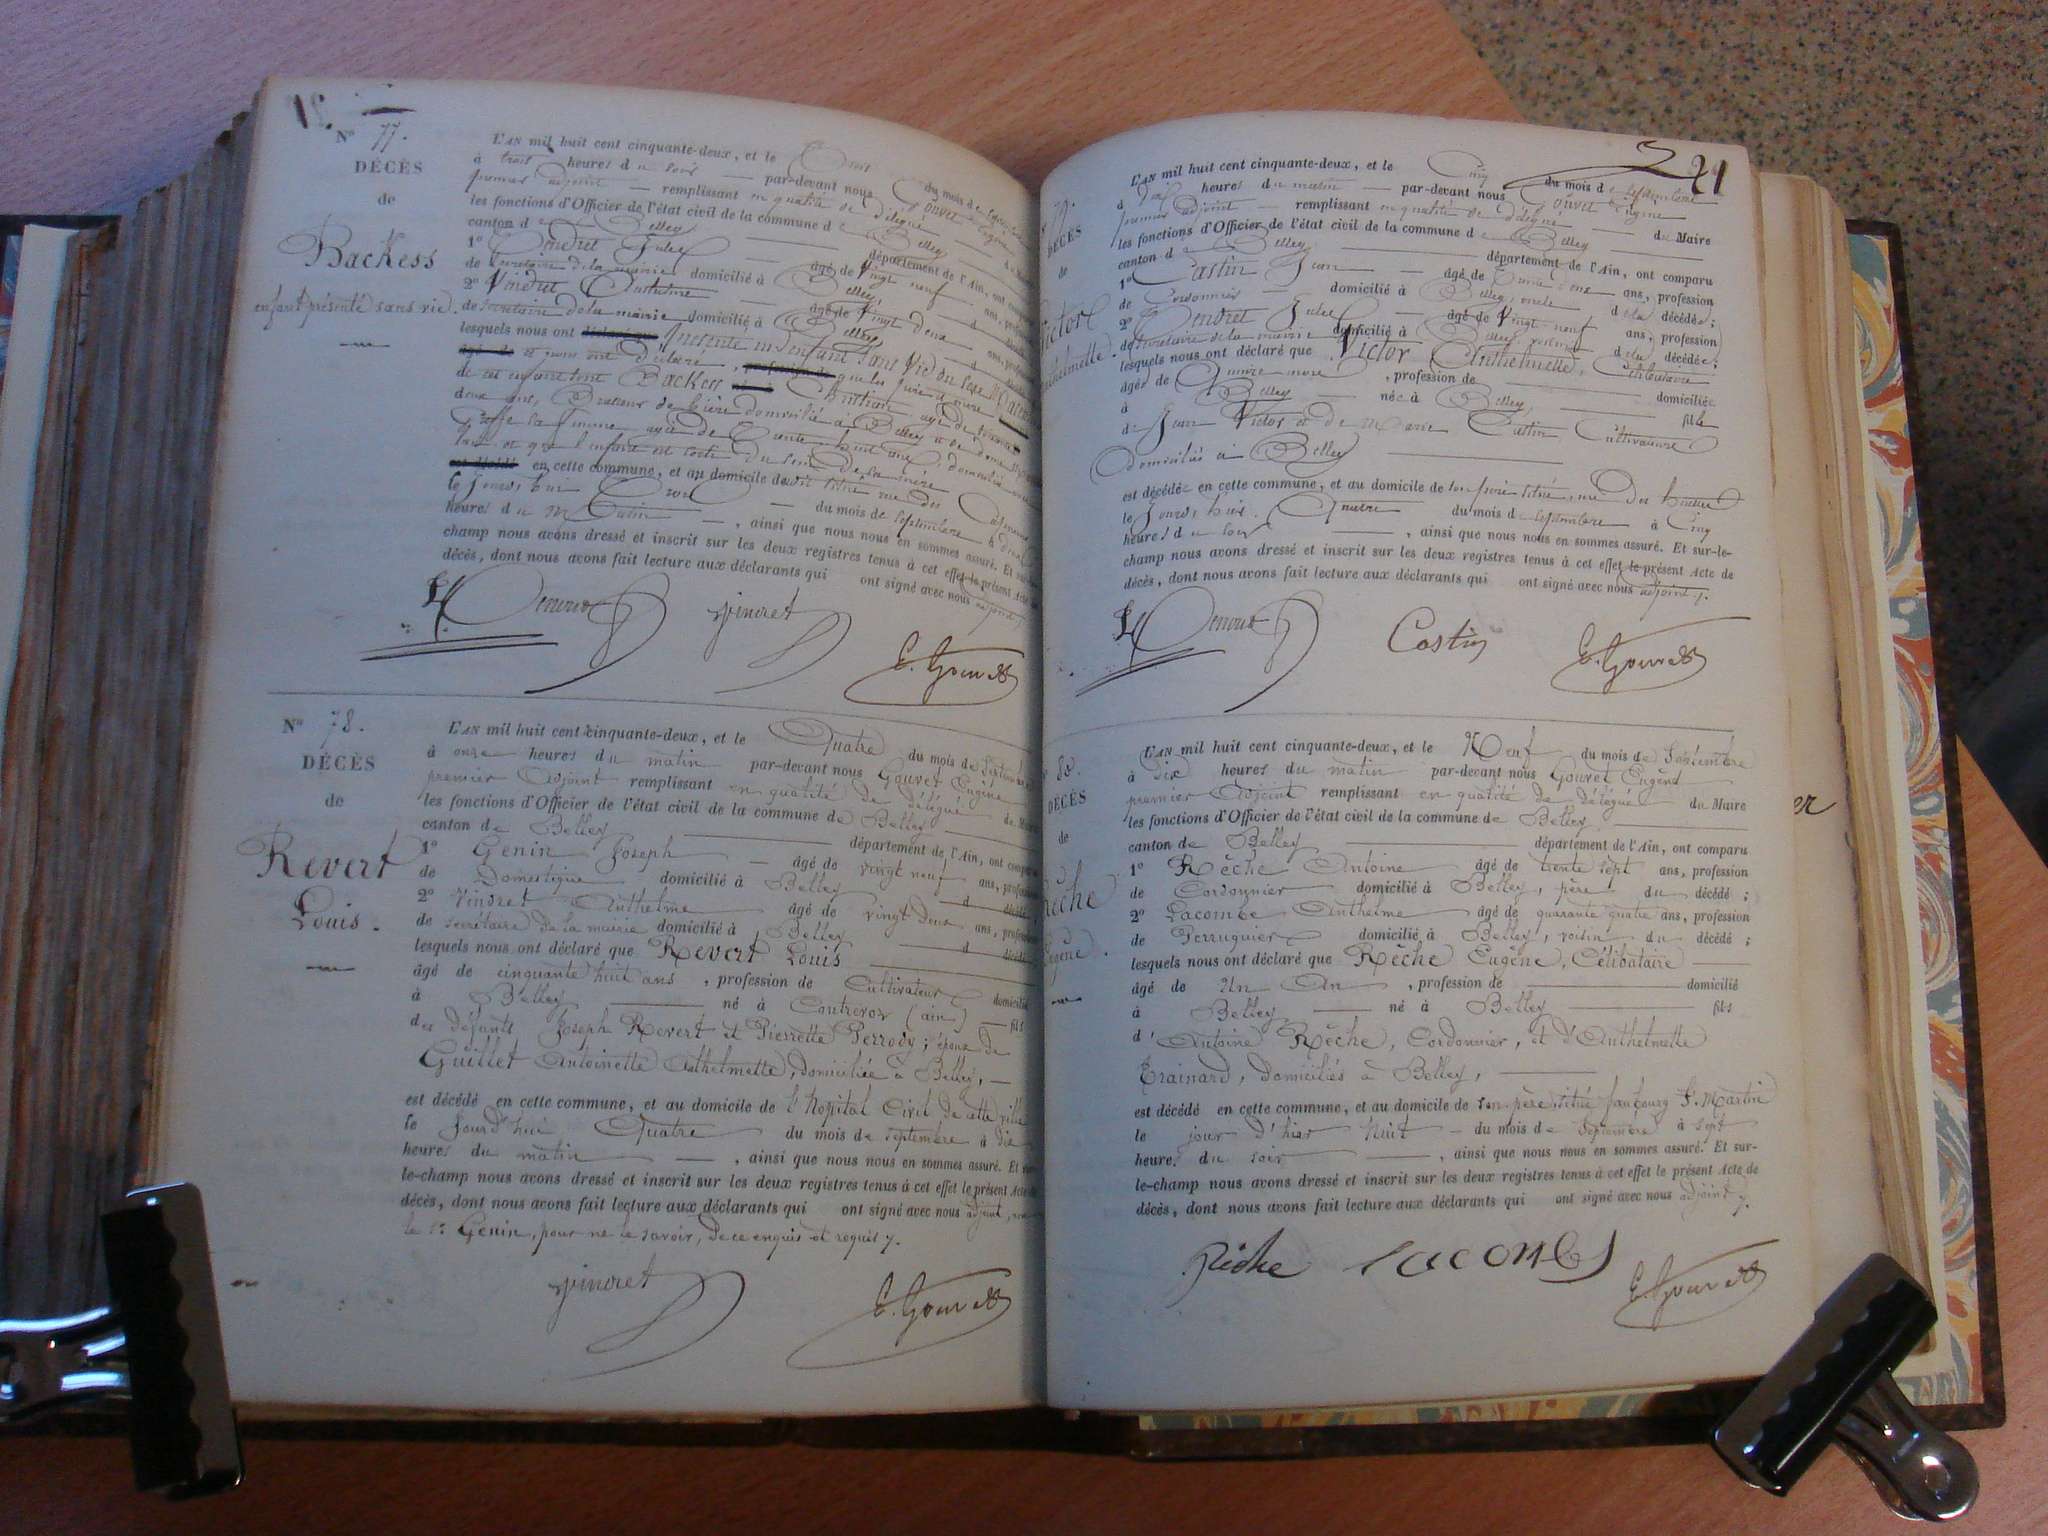 No 77.
DÉCÈS
de
Backess
enfant présenté sans vie.
L'AN mil huit cent cinquante-deux, et le Trois du mois de
à trois heures du soir par-devant nous Gouvet Eugène
premier adjoint remplissant en qualité de délégué
les fonctions d'Officier de l'état civil de la commune de Belley
canton de Belley département de l'Ain, ont
1° Jules âgé de Vingt neuf ans,
de Secrétaire de la mairie domicilié à Belley,
2° Vindret Anthelme âgé de Vingt deux ans,
de Secrétaire de la mairie domicilié à Belley
lesquels nous ont présenté un enfant sans Vie du sexe
et nous ont déclaré que les père et mère
de cet enfant sont Backess
deux ans, de bière domicilié à Belley et de
sa femme agée de Trente huit ans, domiciliée avec
lui et que l'enfant est sorti du sein de sa mère
en cette commune, et au domicile rue des
le jourd'hui Trois du mois de septembre à
heures du Matin, ainsi que nous nous en sommes assuré. Et
champ nous avons dressé et inscrit sur les deux registres tenus à cet effet le présent Acte
décès, dont nous avons fait lecture aux déclarants qui ont signé avec nous adjoint
Vindret
E. Gouvet
No 78.
DÉCÈS
de
Revert
Louis.
L'AN mil huit cent cinquante-deux, et le Quatre du mois de Septembre
à onze heures du matin par-devant nous Gouvet Eugène
premier Adjoint remplissant en qualité de délégué du Maire
les fonctions d'Officier de l'état civil de la commune de Belley
canton de Belley département de l'Ain, ont comparu
1° Genin Joseph âgé de vingt neuf ans, profession
de Domestique domicilié à Belley
2° Vindret Anthelme âgé de vingt deux ans, profession
de secrétaire de la mairie domicilié à Belley
lesquels nous ont déclaré que Revert Louis
âgé de cinquante huit ans, profession de Cultivateur domicilié
à Belley né à Contrevoz (ain) fils
des défunts Joseph Revert et Pierrette Perrody; époux de
Guillet Antoinette Anthelmette, domiciliée à Belley,
est décédé en cette commune, et au domicile de l'hopital Civil de cette ville
le Jourd'hui Quatre du mois de septembre à dix
heures du matin, ainsi que nous nous en sommes assuré. Et sur-
le-champ nous avons dressé et inscrit sur les deux registres tenus à cet effet le présent Acte de
décès, dont nous avons fait lecture aux déclarants qui ont signé avec nous adjoint, non
le Sr Genin, pour ne le savoir, de ce enquis et requis
Vindret
E. Gouvet
21
DÉCÈS
de
L'AN mil huit cent cinquante-deux, et le Cinq du mois de septembre
à dix heures du matin par-devant nous Gouvet Eugène
premier adjoint remplissant en qualité de délégué du Maire
les fonctions d'Officier de l'état civil de la commune de Belley
canton de Belley département de l'Ain, ont comparu
1° Castin Jean âgé de ans, profession
de Cordonnier domicilié à Belley, oncle de la décédée;
2° Jules âgé de Vingt neuf ans, profession
de Secrétaire de la mairie domicilié à Belley, de la décédée;
lesquels nous ont déclaré que Victor Anthelmette, Célibataire
âgée de mois, profession de domiciliée
à Belley née à Belley, fille
de Jean Victor et de Marie Castin, Cultivateurs
domiciliés à Belley
est décédée en cette commune, et au domicile de son père susdit, rue
le Jour d'hier Quatre du mois de septembre à Cinq
heures du soir, ainsi que nous nous en sommes assuré. Et sur-le-
champ nous avons dressé et inscrit sur les deux registres tenus à cet effet le présent Acte de
décès, dont nous avons fait lecture aux déclarants qui ont signé avec nous adjoint
Castin
E. Gouvet
80.
DÉCÈS
de
L'AN mil huit cent cinquante-deux, et le Neuf du mois de Septembre
à Dix heures du matin par-devant nous Gouvet Eugène
premier Adjoint remplissant en qualité de délégué du Maire
les fonctions d'Officier de l'état civil de la commune de Belley
canton de Belley département de l'Ain, ont comparu
1° Rèche Antoine âgé de trente sept ans, profession
de Cordonnier domicilié à Belley, père du décédé;
2° Lacombe Anthelme âgé de quarante quatre ans, profession
de Perruquier domicilié à Belley, voisin du décédé;
lesquels nous ont déclaré que Rèche Eugène, Célibataire
âgé de Un An, profession de domicilié
à Belley né à Belley fils
d'Antoine Rèche, Cordonnier, et d'Anthelmette
Trainard, domiciliés à Belley,
est décédé en cette commune, et au domicile de son père susdit faubourg St. Martin
le jour d'hier huit du mois de Septembre à sept
heures du soir, ainsi que nous nous en sommes assuré. Et sur-
le-champ nous avons dressé et inscrit sur les deux registres tenus à cet effet le présent Acte de
décès, dont nous avons fait lecture aux déclarants qui ont signé avec nous adjoint
Rèche
Lacombe
E. Gouvet
er